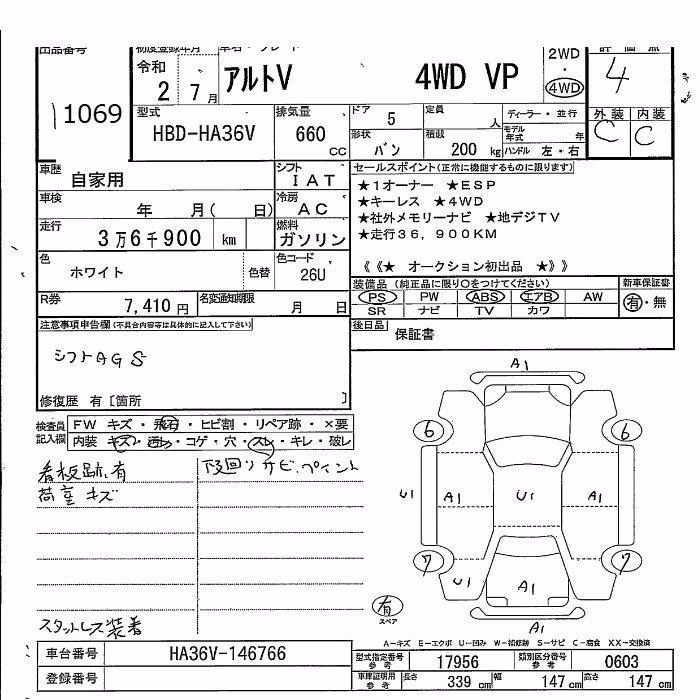 出品番号
1069
初度登録年月
令和
2 7月
車名・グレード
アルトV 4WD VP
2WD
・
4WD
評価点
4
型式
HBD-HA36V
排気量
660
CC
ドア
5
定員
人
形状
バン
積載
200 kg
ディーラー・並行
モデル年式 年
ハンドル 左・右
外装 内装
C C
車歴
自家用
シフト
IAT
車検
年 月( 日)
冷房
AC
走行
3万6千900 km
燃料
ガソリン
色
ホワイト
色替
色コード
26U
R券
7,410円
名変通知期限
月 日
セールスポイント(正常に機能するものに限ります)
★1オーナー ★ESP
★キーレス ★4WD
★社外メモリーナビ ★地デジTV
★走行36,900KM
《《★ オークション初出品 ★》》
装備品 (純正品に限り○をつけてください)
新車保証書
PS PW ABS エアB AW
有・無
SR ナビ TV カワ
後日品
保証書
注意事項申告欄(不具合内容等は具体的に記入して下さい)
シフトAGS
修復歴 有[箇所 ]
検査員
記入欄
FW キズ・飛石・ヒビ割・リペア跡・×要
内装 キズ・汚れ・コゲ・穴・スレ・キレ・破レ
看板跡有
荷室キズ
下回りサビ、ペイント
スタットレス装着
A1
6
6
U1
A1
U1
A1
A1
7
7
U1
A1
有
スペア
A1
A-キズ E-エクボ U-凹み W-補修跡 S-サビ C-腐食 XX-交換済
車台番号
HA36V-146766
登録番号
型式指定番号
参考
17956
類別区分番号
参考
0603
車庫証明用
参考
長さ
339 cm
幅
147 cm
高さ
147 cm